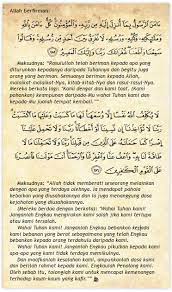 Allah berfirman:
ءَامَنَ ٱلرَّسُولُ بِمَآ أُنزِلَ إِلَيْهِ مِن رَّبِّهِۦ وَٱلْمُؤْمِنُونَ كُلٌّ ءَامَنَ
بِٱللَّهِ وَمَلَٰٓئِكَتِهِۦ وَكُتُبِهِۦ وَرُسُلِهِۦ لَا نُفَرِّقُ بَيْنَ أَحَدٍ مِّن رُّسُلِهِۦ وَقَالُوا۟
سَمِعْنَا وَأَطَعْنَا غُفْرَانَكَ رَبَّنَا وَإِلَيْكَ ٱلْمَصِيرُ
Maksudnya: "Rasulullah telah beriman kepada apa yang
diturunkan kepadanya daripada Tuhannya dan begitu juga
orang yang beriman. Semuanya beriman kepada Allah,
malaikat-malaikat-Nya, kitab-kitab-Nya dan rasul-rasul-Nya.
Mereka berkata lagi: "Kami dengar dan kami taat. (Kami
pohonkan) keampunan daripada-Mu wahai Tuhan kami dan
kepada-Mu jualah tempat kembali.""
لَا يُكَلِّفُ ٱللَّهُ نَفْسًا إِلَّا وُسْعَهَا لَهَا مَا كَسَبَتْ وَعَلَيْهَا مَا ٱكْتَسَبَتْ
رَبَّنَا لَا تُؤَاخِذْنَآ إِن نَّسِينَآ أَوْ أَخْطَأْنَا رَبَّنَا وَلَا تَحْمِلْ عَلَيْنَآ إِصْرًا
كَمَا حَمَلْتَهُۥ عَلَى ٱلَّذِينَ مِن قَبْلِنَا رَبَّنَا وَلَا تُحَمِّلْنَا مَا لَا طَاقَةَ لَنَا
بِهِۦ وَٱعْفُ عَنَّا وَٱغْفِرْ لَنَا وَٱرْحَمْنَآ أَنتَ مَوْلَىٰنَا فَٱنصُرْنَا
عَلَى ٱلْقَوْمِ ٱلْكَٰفِرِينَ
Maksudnya: "Allah tidak membebati seseorang melainkan
dengan apa yang terdaya olehnya. Ia mendapat pahala
kebaikan yang diusahakannya dan ia juga menanggung dosa
kejahatan yang diusahakannya.
(Mereka berdoa dengan berkata): "Wahai Tuhan kami
Janganlah Engkau mengirakan kami salah jika kami terlupa
atau kami tersalah.
Wahai Tuhan kami Janganlah Engkau bebankan kepada
kami bebanan yang berat sebagaimana yang telah Engkau
bebankan kepada orang terdahulu daripada kami.
Wahai Tuhan kami Janganlah Engkau pikulkan kepada kami
apa yang kami tidak terdaya memikulnya.
Dan maafkanlah kesalahan kami, ampunkanlah dosa kami